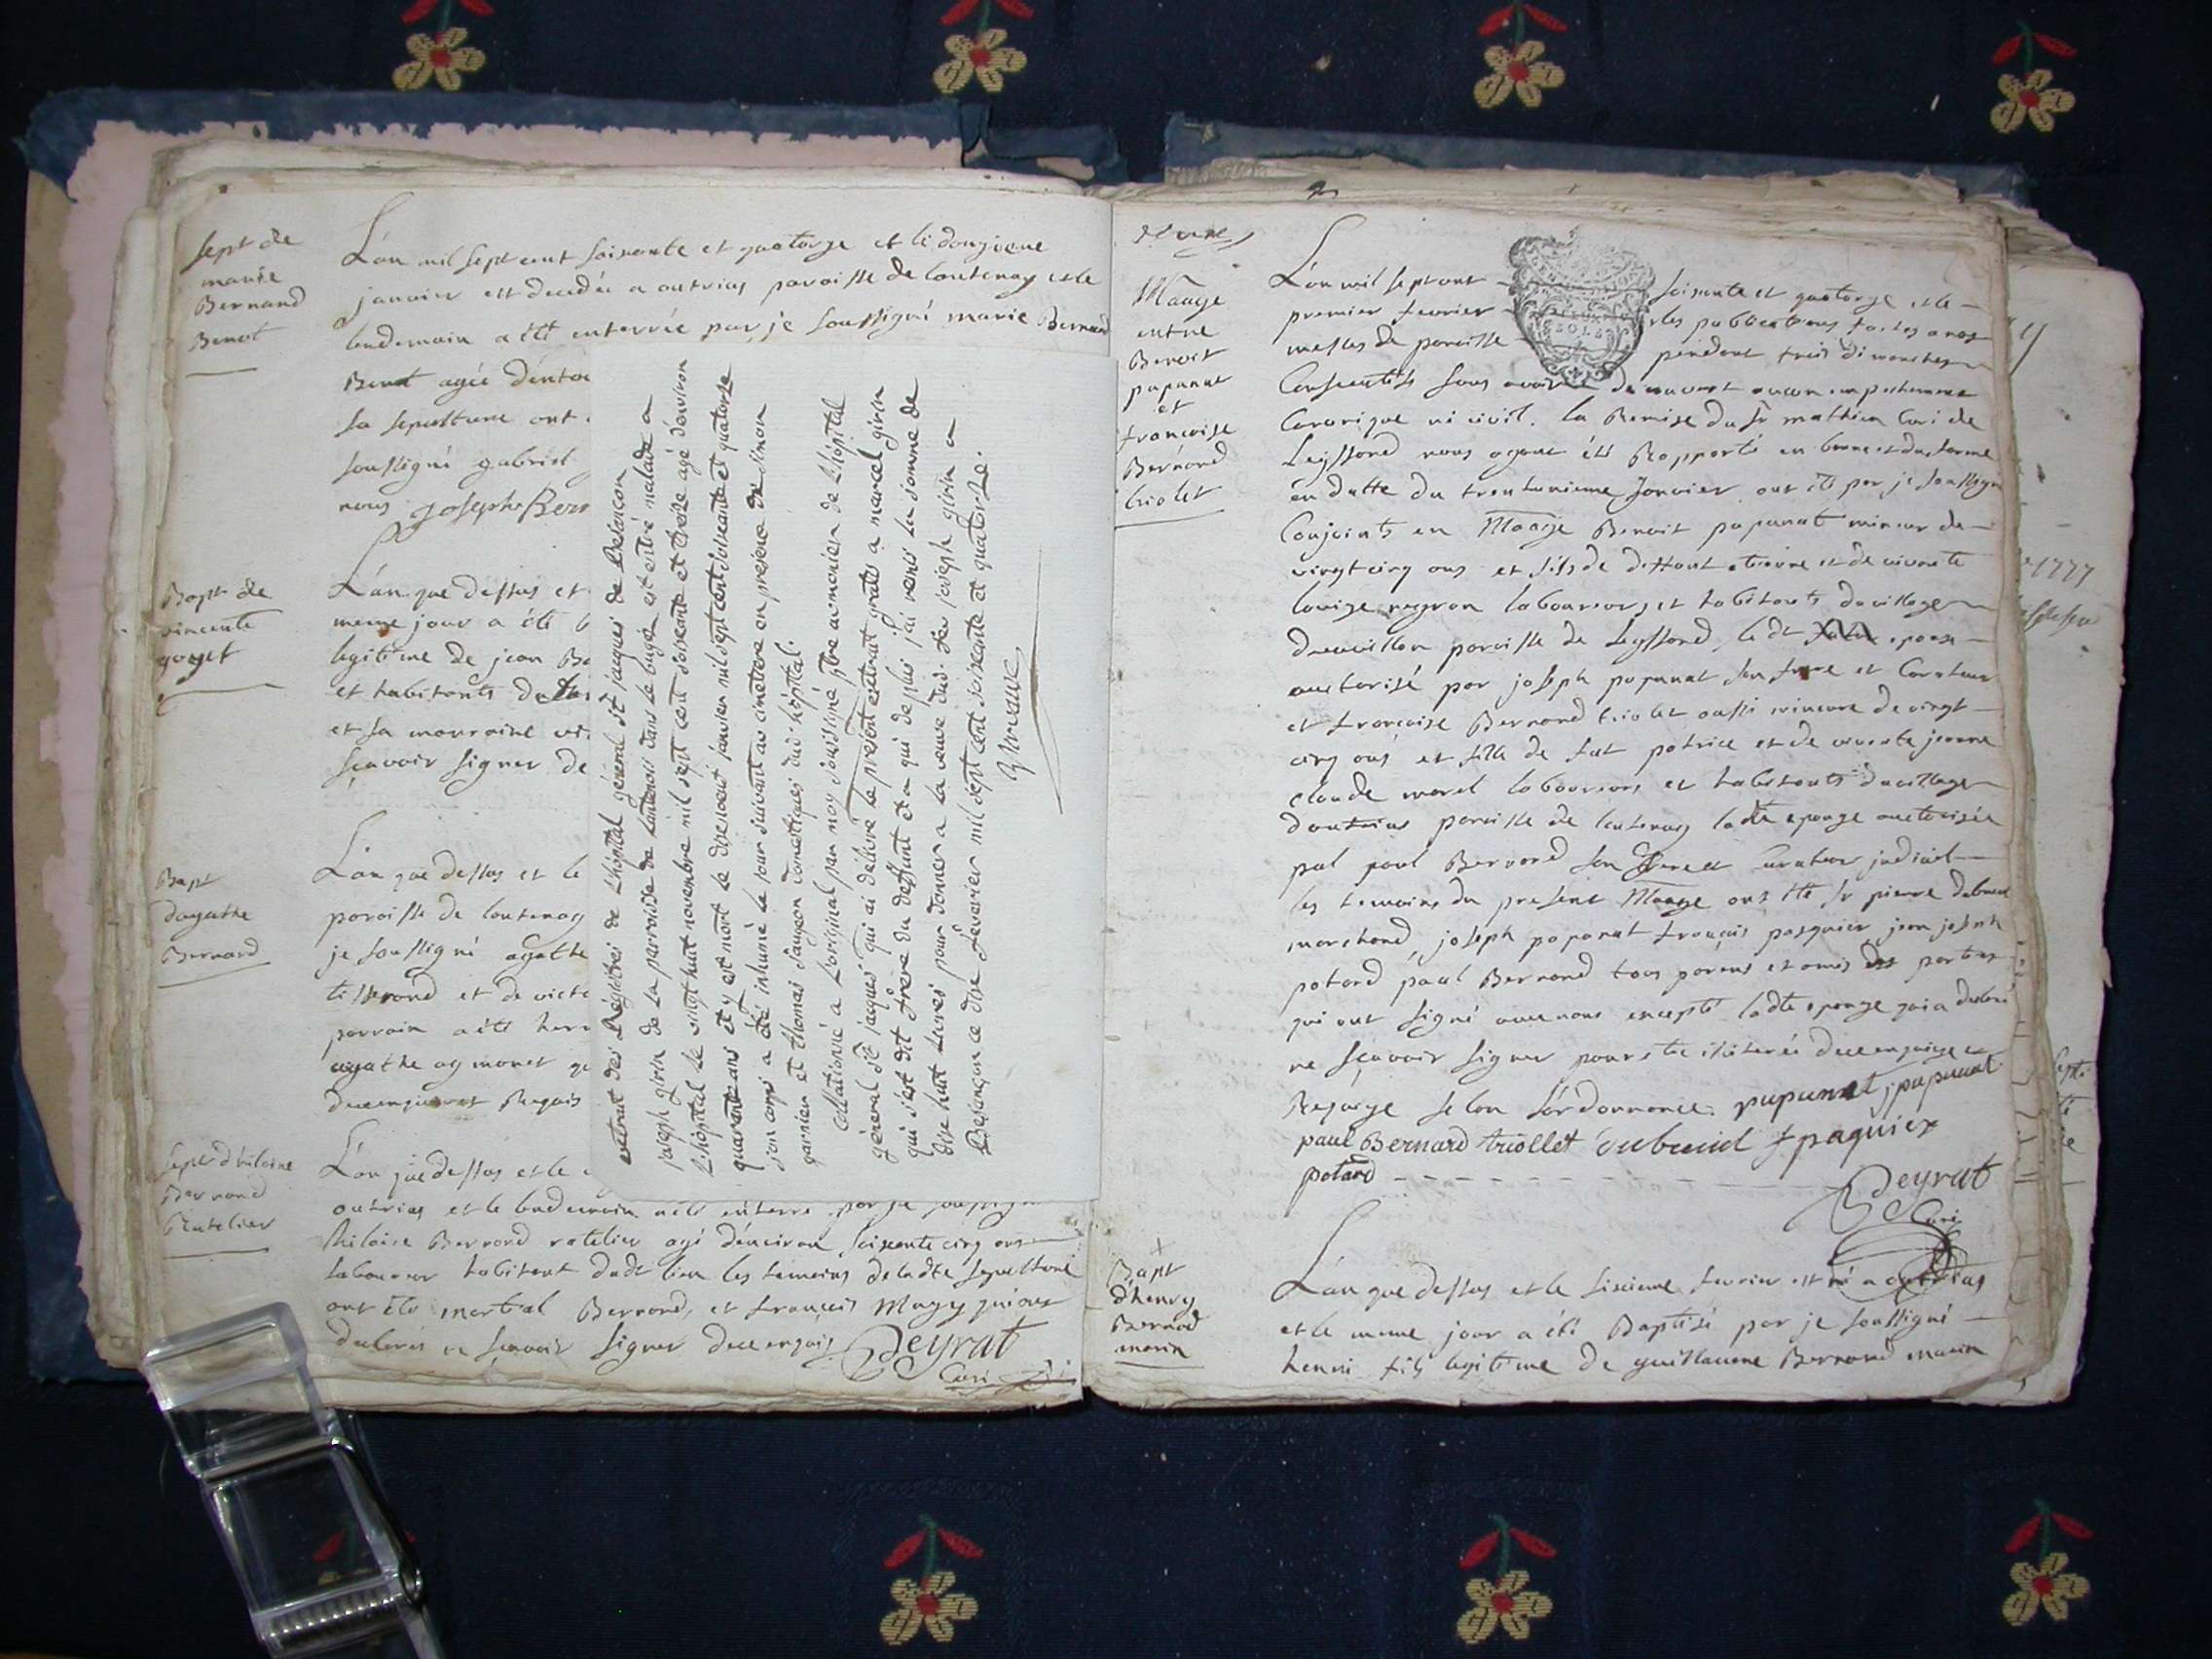 Sept de
marie
Bernard
Benot
L'an mil sept cent soixante et quatorze et le douzieme
janvier est decedée a outrias paroisse de lantenay et le
lendemain a été enterrée par je soussigné marie Bernard
Benot agée d'env
sa sepulture ont
soussigné gabriel
nous joseph Bern
Bapt de
vincente
goyet
L'an que dessus et
meme jour a été b
legitime de jean Be
et habitants du
et sa marraine vi
sçavoir signer de
Bapt
dagathe
Bernard
L'an que dessus et le
paroisse de lantenay
je soussigné agathe
tisserand et de victo
parrain a été
agathe aymonet q
dece enquis et Requis
Sept d'hilaire
Bernard
Ratelier
L'an que dessus et le
outrias et le lendemain a été enterré par je soussigné
hilaire Bernard ratelier agé d'environ soixante cinq ans
laboureur habitant dudt lieu les temoins de ladte sepulture
ont été martial Bernard, et françois Magy qui ont
declarés ne sçavoir signer dece enquis Deyrat
Curé
extrait des Régistres de L'hôpital général st jacques de Besançon
joseph girin de La parroisse de Lantenai dans Le bugei est entré malade a
L'hôpital Le vingt huit novembre mil sept cent soixante et treize agé d'environ
quarante ans et y est mort Le dixneuf janvier mil sept cent soixante et quatorze
son corps a été inhumé Le jour suivant au cimetiere en presence de simon
garnier et thomas saugeon domestiques dud. hôpital.
Collationné a L'original par moy soussigné ptre aumonier de L'hôpital
general st jacques qui ai délivré Le présent extrait gratis a marcel girin
qui s'est dit frère du deffunt et a qui de plus j'ai remis La somme de
dix huit Livres pour donner a La veuve dud. feu joseph girin a
Besançon ce dix février mil sept cent soixante et quatorze.
Mage
entre
Benoit
papunat
et
francoise
Bernard
triolet
L'an mil sept cent soixante et quatorze et le
premier fevrier les publications faites a nos
messes de paroisse pendant trois dimanches
Consecutifs sans avoir decouvert aucun empechement
Canonique ni civil. la Remise du sr mathieu Curé de
Leyssard nous ayant été Rapporté en bonne et due forme
en datte du trente unieme Janvier ont été par je soussigné
Conjoints en Mariage Benoit papunat mineur de
vingt cinq ans et fils de deffunt etienne et de vivante
louise negron laboureurs et habitants du village
paroisse de Leyssard, le dt epoux
auctorisé par joseph papunat son frere et Curateur
et françoise Bernard triolet aussi mineure de vingt
cinq ans et fille de fut patrice et de vivante jeanne
claude morel laboureurs et habitants du village
doutrias paroisse de lantenay ladte epouse auctorisée
par paul Bernard son frere et Curateur judiciel
les temoins du present Mariage ont été sr pierre dubreuil
marchand, joseph papunat françois pasquier jean joseph
potard paul Bernard tous parens et amis des parties
qui ont signé avec nous excepté ladte epouse qui a declaré
ne sçavoir signer pour etre illiterée dece enquise et
Requise selon l'ordonnance. papunat, j papunat
paul Bernard triollet dubreuil f paquier
potard Deyrat
Curé
Bapt
d'henry
Bernard
morin
L'an que dessus et le sixieme fevrier est né a outrias
et le meme jour a été Baptisé par je soussigné
henri fils legitime de guillaume Bernard morin
1777